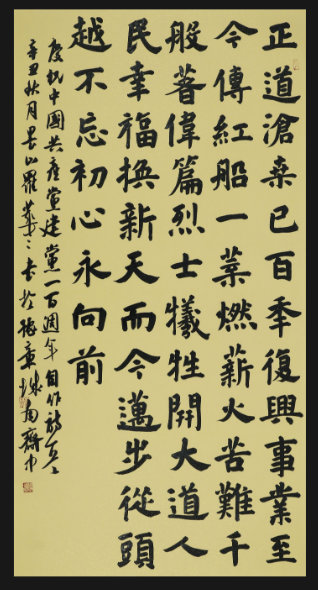 正道滄桑已百秊復興事業至
今傳紅船一葉燃薪火苦難千
般著偉篇烈士犧牲開大道人
民幸福換新天而今邁步從頭
越不忘初心永向前
慶祝中國共產黨建黨一百週年自作詩
辛丑秋月 羅 書於 齋中